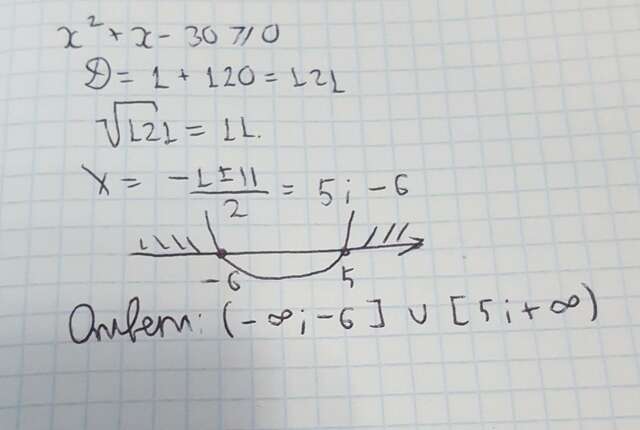 x² + x - 30 ≥ 0
D = 1 + 120 = 121
√121 = 11.
x = (-1 ± 11)/2 = 5; -6
-6 5
Ответ: (-∞; -6] ∪ [5; +∞)